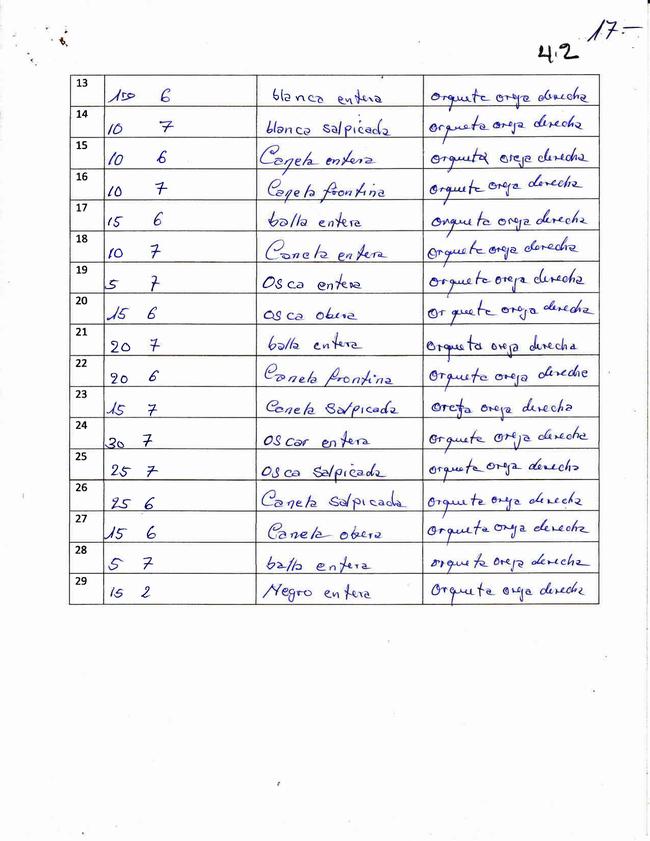 17.—
4.2
13 150 6 blanca entera orqueta oreja derecha
14 10 7 blanca salpicada orqueta oreja derecha
15 10 6 Canela entera orqueta oreja derecha
16 10 7 Canela frontina orqueta oreja derecha
17 15 6 balla entera orqueta oreja derecha
18 10 7 Canela entera orqueta oreja derecha
19 5 7 Osca entera orqueta oreja derecha
20 15 6 Osca obera orqueta oreja derecha
21 20 7 balla entera orqueta oreja derecha
22 20 6 Canela frontina orqueta oreja derecha
23 15 7 Canela Salpicada oreja derecha
24 30 7 Oscar entera orqueta oreja derecha
25 25 7 Osca Salpicada orqueta oreja derecha
26 25 6 Canela Salpicada orqueta oreja derecha
27 15 6 Canela obera orqueta oreja derecha
28 5 7 balla entera orqueta oreja derecha
29 15 2 Negro entera orqueta oreja derecha